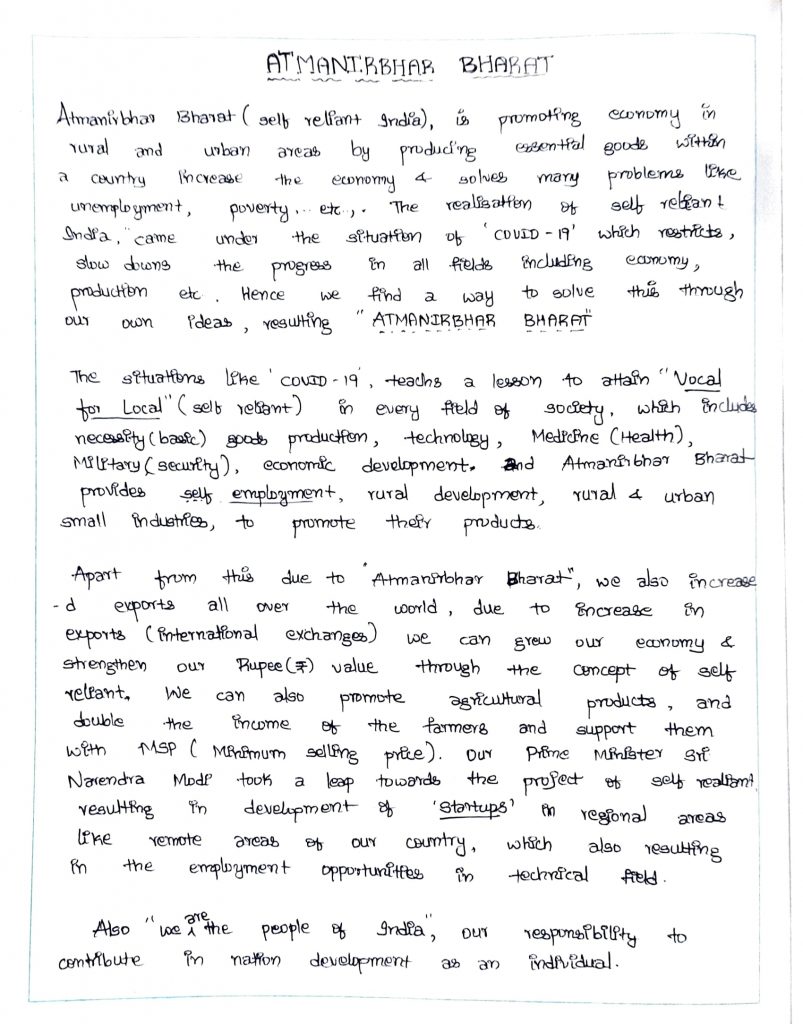 ATMANIRBHAR BHARAT
Atmanirbhar Bharat ( self reliant India), is promoting economy in
rural and urban areas by producing essential goods within
a country increase the economy & solves many problems like
unemployment, poverty... etc.,. The realisation of self reliant
India, "came under the situation of 'COVID-19' which restricts,
slow downs the progress in all fields including economy,
production etc. Hence we find a way to solve this through
our own ideas, resulting "ATMANIRBHAR BHARAT"
The situations like 'COVID-19', teachs a lesson to attain "Vocal
for Local" (self reliant) in every field of society, which includes
necessity (basic) goods production, technology, Medicine (Health),
Military (security), economic development. and Atmanirbhar Bharat
provides self employment, rural development, rural & urban
small industries, to promote their products.
Apart from this due to "Atmanirbhar Bharat", we also increase
-d exports all over the world, due to increase in
exports (international exchanges) we can grew our economy &
strengthen our Rupee(₹) value through the concept of self
reliant. We can also promote agricultural products, and
double the income of the farmers and support them
with MSP ( Minimum selling price). Our Prime Minister Sri
Narendra Modi took a leap towards the project of self realiant
resulting in development of 'Startups' in regional areas
like remote areas of our country, which also resulting
in the employment opportunities in technical field.
Also "we are the people of India", our responsibility to
contribute in nation development as an individual.